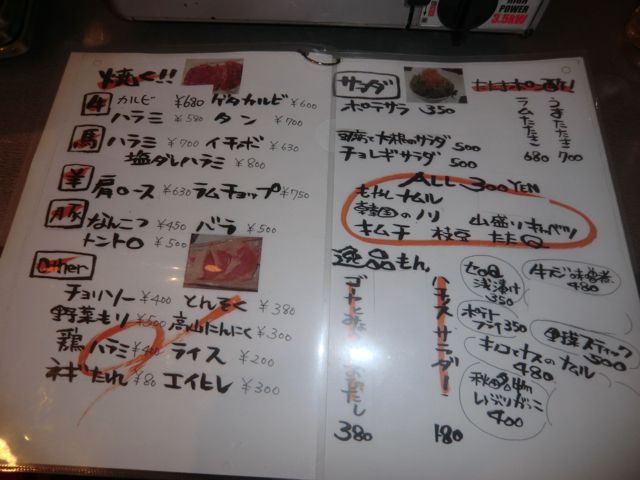 HIGH
POWER
3.5kW
焼く!!
牛 カルビ ¥680 ゲタカルビ ¥600
ハラミ ¥580 タン ¥700
馬 ハラミ ¥700 イチボ ¥630
塩ダレハラミ ¥800
羊 肩ロース ¥630 ラムチョップ ¥750
豚 なんこつ ¥450 バラ ¥500
トントロ ¥500
Other
チョリソー ¥400 とんそく ¥380
野菜もり ¥500 高山にんにく ¥300
鶏ハラミ ¥400 ライス ¥200
ネギだれ ¥80 エイヒレ ¥300
サラダ
ポテサラ 350
豆腐と大根のサラダ 500
チョレギサラダ 500
たたきポン酢!
うまたたき 700
ラムたたき 680
ALL 300YEN
もやしナムル
韓国のノリ 山盛りキャベツ
キムチ 枝豆 たたQ
逸品もん
380
180
浅漬け 350
480
ポテトフライ 350
野菜スティック 500
キノコとナスのナムル 480
秋田名物 いぶりがっこ 400